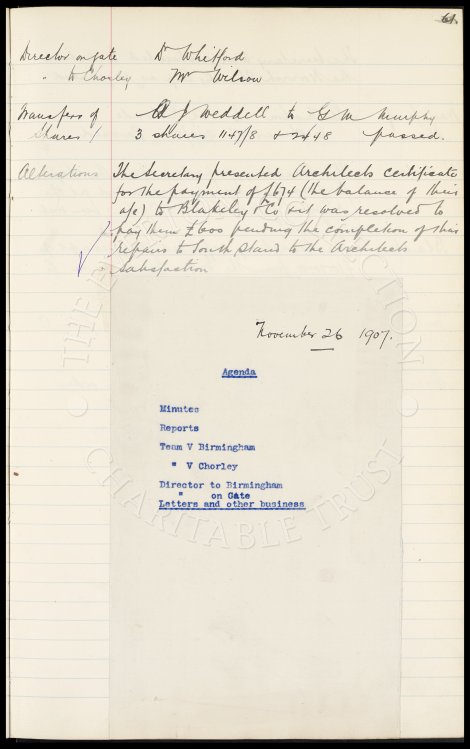 61.
Director on gate Dr Whitford
" to Chorley Mr Wilson
Transfers of A J Weddell to G W Murphy
Shares / 3 shares 1147/8 & 2448 passed.
Alterations The Secretary presented Architects certificate
for the payment of £674 (the balance of their
a/c) to Blakeley & Co & it was resolved to
pay them £600 pending the completion of their
repairs to South Stand to the Architects
Satisfaction
November 26 1907.
Agenda
Minutes
Reports
Team V Birmingham
" V Chorley
Director to Birmingham
" on Gate
Letters and other business
THE EVERTON COLLECTION
CHARITABLE TRUST